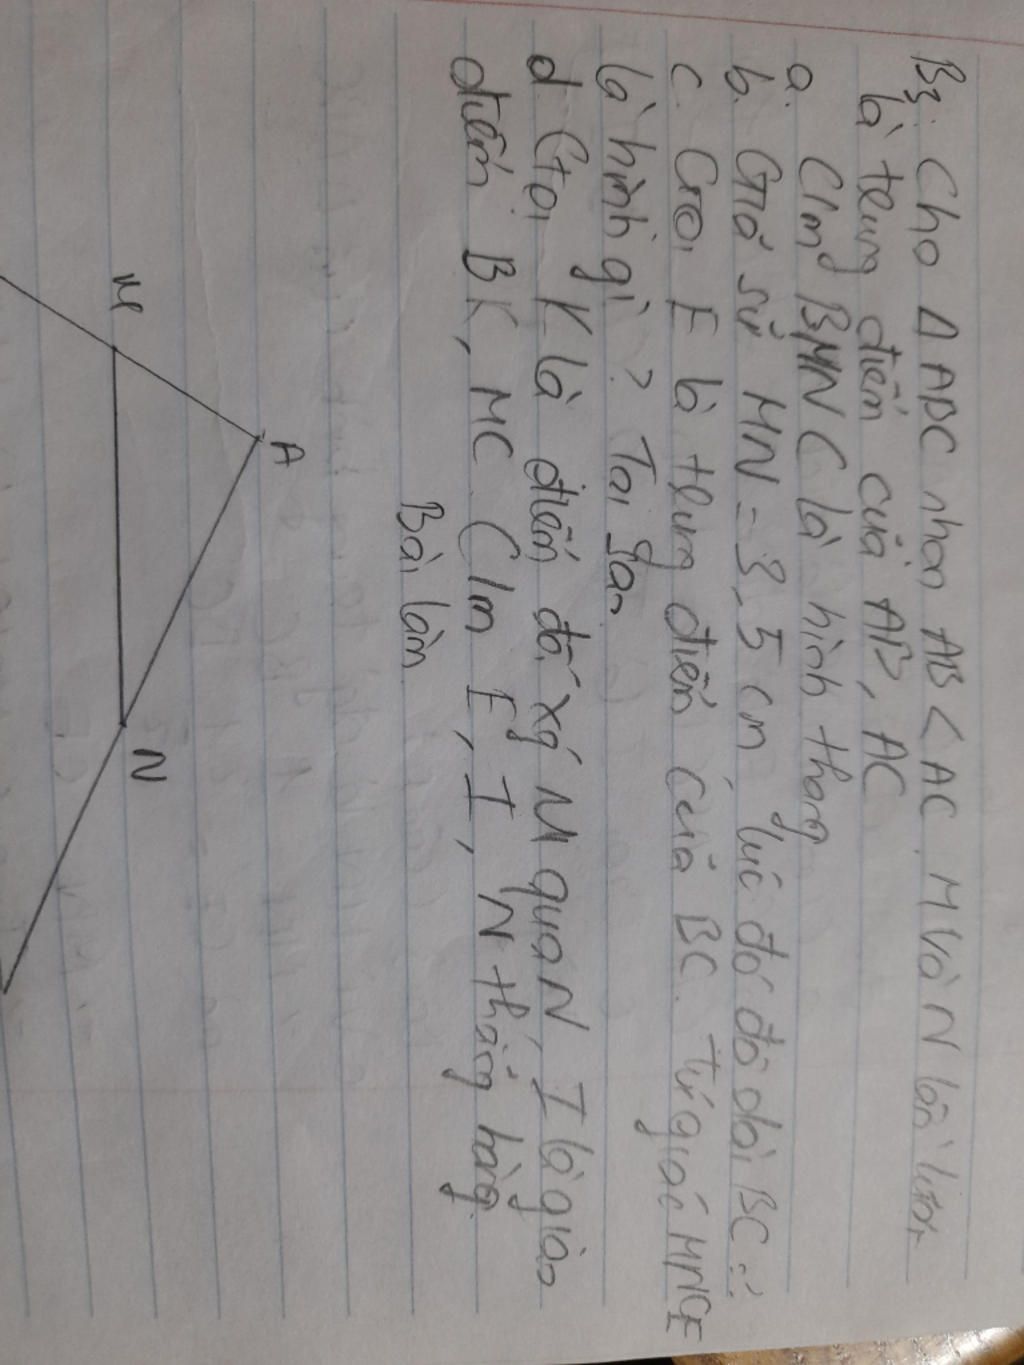 B3: Cho Δ ABC nhọn AB < AC. M và N lần lượt
là trung điểm của AB, AC
a. C/m BMNC là hình thang
b. Giả sử MN = 3,5 cm lúc đó độ dài BC = ?
c. Gọi E là trung điểm của BC. Tứ giác MNCE
là hình gì? Tại sao
d. Gọi K là điểm đối xứ M qua N, I là giao
điểm BK, MC C/m E, I, N thẳng hàng.
Bài làm
A
M
N